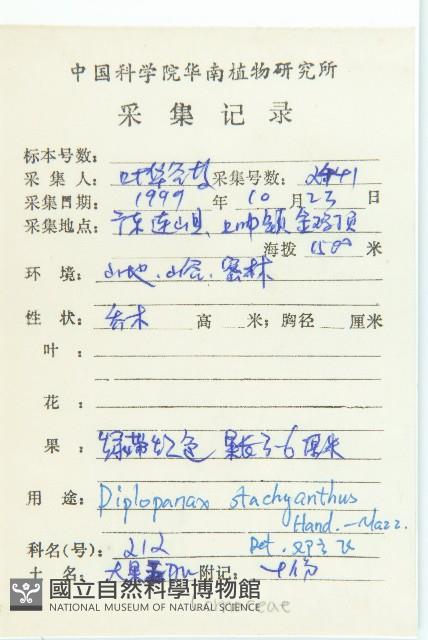 中国科学院华南植物研究所
采集记录
标本号数：
采集人：叶华谷 采集号数：
采集日期：1999年10月23日
采集地点：广东连山县、上帅镇 金鸡顶
海拨 1500 米
环境：山地．山谷．密林
性状：乔木 高 米；胸径 厘米
叶：
花：
果：绿带红色 果长5-6厘米
用途：Diplopanax stachyanthus
Hand.-Mazz.
科名(号)：212 Det.
土名：大果 附记：份
國立自然科學博物館
NATIONAL MUSEUM OF NATURAL SCIENCE